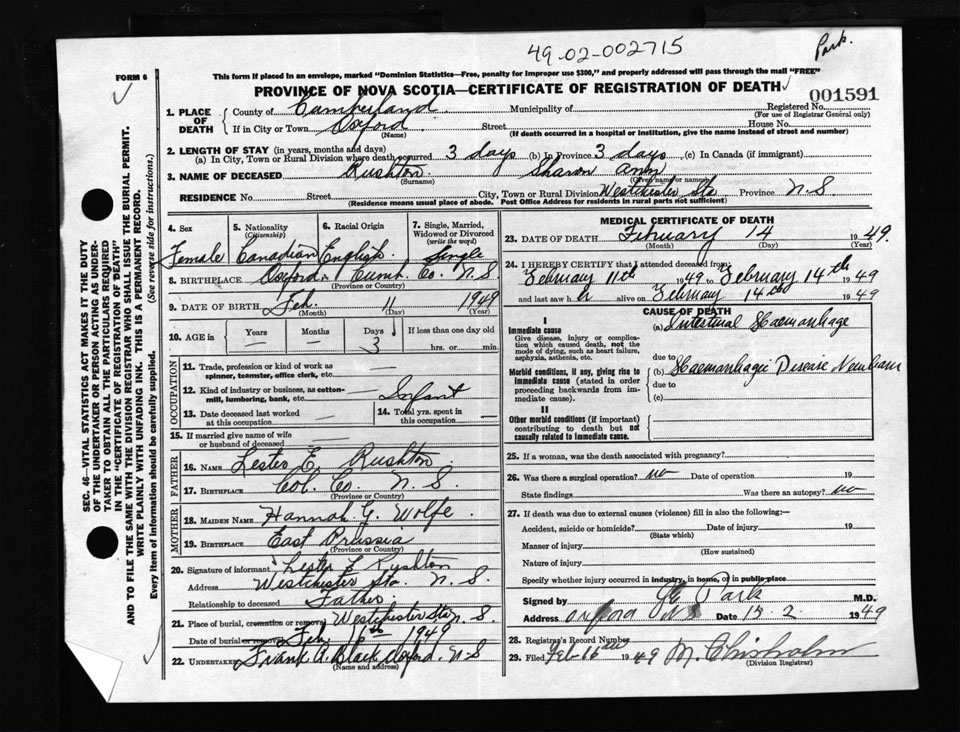 49-02-002715
Park.
FORM 6
This form if placed in an envelope, marked "Dominion Statistics—Free, penalty for improper use $300," and properly addressed will pass through the mail "FREE"
PROVINCE OF NOVA SCOTIA—CERTIFICATE OF REGISTRATION OF DEATH
001591
1. PLACE OF DEATH
County of Cumberland Municipality of Registered No.
(For use of Registrar General only)
If in City or Town Oxford Street House No.
(Name) (If death occurred in a hospital or institution, give the name instead of street and number)
2. LENGTH OF STAY (in years, months and days)
(a) In City, Town or Rural Division where death occurred 3 days (b) In Province 3 days (c) In Canada (if immigrant)
3. NAME OF DECEASED Rushton Sharon Ann
(Surname) (Given name or names)
RESIDENCE No. Street City, Town or Rural Division Westchester Sta Province N.S
(Residence means usual place of abode. Post Office Address for residents in rural parts not sufficient)
4. Sex
Female
5. Nationality
(Citizenship)
Canadian
6. Racial Origin
English
7. Single, Married,
Widowed or Divorced
(write the word)
Single
8. BIRTHPLACE Oxford Cumb. Co. N.S
(Province or Country)
9. DATE OF BIRTH Feb. 11 1949
(Month) (Day) (Year)
10. AGE in Years Months Days If less than one day old
— — 3 hrs. or min.
OCCUPATION
11. Trade, profession or kind of work as
spinner, teamster, office clerk, etc.
12. Kind of industry or business, as cotton-
mill, lumbering, bank, etc. Infant
13. Date deceased last worked
at this occupation
14. Total yrs. spent in
this occupation
15. If married give name of wife
or husband of deceased
FATHER
16. NAME Lester E. Rushton
17. BIRTHPLACE Col. Co. N.S.
(Province or Country)
MOTHER
18. MAIDEN NAME Hannah G. Wolfe
19. BIRTHPLACE East Prussia
(Province or Country)
20. Signature of informant Lester E Rushton
Address Westchester Sta. N.S.
Relationship to deceased Father
21. Place of burial, cremation or removal Westchester Sta N.S
Date of burial or removal Feb 16th 1949
22. Undertaker Frank A. Black Oxford. N.S
(Name and address)
MEDICAL CERTIFICATE OF DEATH
23. DATE OF DEATH February 14 1949.
(Month) (Day) (Year)
24. I HEREBY CERTIFY that I attended deceased from
February 11th 1949 to February 14th 1949
and last saw h alive on February 14th 1949
CAUSE OF DEATH
I
Immediate cause
Give disease, injury or complica-
tion which caused death, not the
mode of dying, such as heart failure,
asphyxia, asthenia, etc.
(a) Intestinal Haemorrhage
due to
Morbid conditions, if any, giving rise to
immediate cause (stated in order
proceeding backwards from im-
mediate cause).
(b) Haemorrhagic Disease Newborn
due to
(c)
II
Other morbid conditions (if important)
contributing to death but not
causally related to immediate cause.
25. If a woman, was the death associated with pregnancy?
26. Was there a surgical operation? no Date of operation 19
State findings Was there an autopsy? no
27. If death was due to external causes (violence) fill in also the following:—
Accident, suicide or homicide? Date of injury 19
(State which)
Manner of injury
(How sustained)
Nature of injury
Specify whether injury occurred in industry, in home, or in public place
Signed by Park M.D.
Address Oxford N.S Date 15.2. 1949
28. Registrar's Record Number
29. Filed Feb 16th 1949 M. Chisholm
(Division Registrar)
SEC. 46—VITAL STATISTICS ACT MAKES IT THE DUTY
OF THE UNDERTAKER OR PERSON ACTING AS UNDER-
TAKER TO OBTAIN ALL THE PARTICULARS REQUIRED
IN THE "CERTIFICATE OF REGISTRATION OF DEATH"
AND TO FILE THE SAME WITH THE DIVISION REGISTRAR WHO SHALL ISSUE THE BURIAL PERMIT.
WRITE PLAINLY WITH UNFADING INK. THIS IS A PERMANENT RECORD.
Every item of information should be carefully supplied. (See reverse side for instructions.)